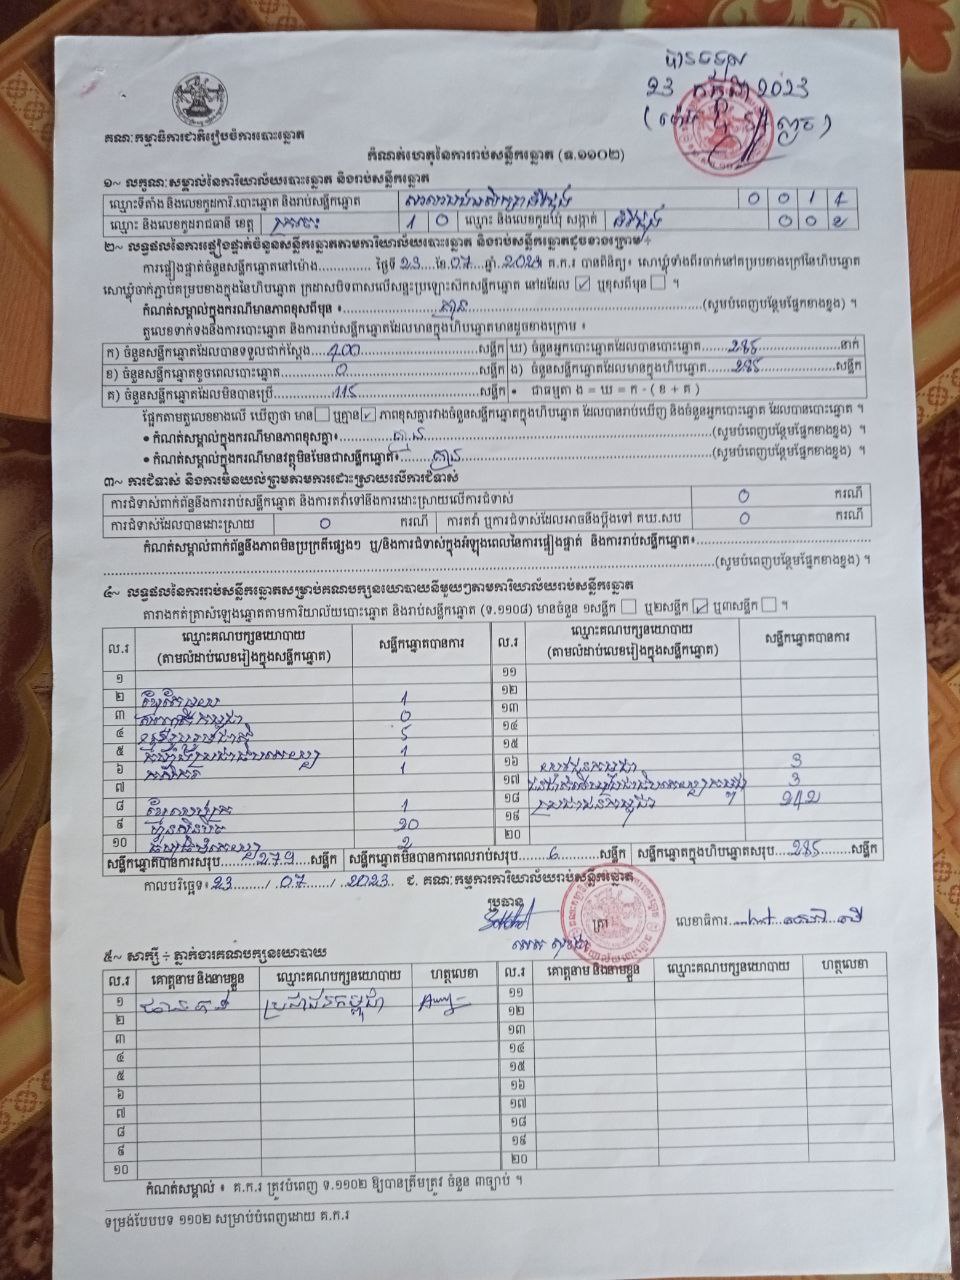 បានទទួល
23 កក្កដា 2023
គណៈកម្មាធិការជាតិរៀបចំការបោះឆ្នោត
កំណត់ហេតុនៃការរាប់សន្លឹកឆ្នោត (ទ.១១០២)
១~ លក្ខណៈសម្គាល់នៃការិយាល័យបោះឆ្នោត និងរាប់សន្លឹកឆ្នោត
ឈ្មោះទីតាំង និងលេខកូដការិ.បោះឆ្នោត និងរាប់សន្លឹកឆ្នោត 0 0 1
ឈ្មោះ និងលេខកូដរាជធានី ខេត្ត ក្រចេះ 1 0 ឈ្មោះ និងលេខកូដឃុំ សង្កាត់ 0 0
២~ លទ្ធផលនៃការផ្ទៀងផ្ទាត់ចំនួនសន្លឹកឆ្នោតតាមការិយាល័យបោះឆ្នោត និងរាប់សន្លឹកឆ្នោតដូចខាងក្រោម ÷
ការផ្ទៀងផ្ទាត់ចំនួនសន្លឹកឆ្នោតនៅម៉ោង............. ថ្ងៃទី 23 ខែ 07 ឆ្នាំ 2023 គ.ក.រ បានពិនិត្យ៖ សោឃ្លុំទាំងពីរចាក់នៅគម្របខាងក្រៅនៃហិបឆ្នោត
សោឃ្លុំចាក់ភ្ជាប់គម្របខាងក្នុងនៃហិបឆ្នោត ក្រដាសបិទពាសលើសន្ទះប្រឡោះសឹកសន្លឹកឆ្នោត នៅដដែល ☑ ឬខុសពីមុន ☐ ។
កំណត់សម្គាល់ក្នុងករណីមានភាពខុសពីមុន ៖ គ្មាន (សូមបំពេញបន្ថែមផ្នែកខាងខ្នង) ។
តួលេខទាក់ទងនឹងការបោះឆ្នោត និងការរាប់សន្លឹកឆ្នោតដែលមានក្នុងហិបឆ្នោតមានដូចខាងក្រោម ៖
ក) ចំនួនសន្លឹកឆ្នោតដែលបានទទួលជាក់ស្តែង 400 សន្លឹក ឃ) ចំនួនអ្នកបោះឆ្នោតដែលបានបោះឆ្នោត 285 នាក់
ខ) ចំនួនសន្លឹកឆ្នោតខូចពេលបោះឆ្នោត 0 សន្លឹក ង) ចំនួនសន្លឹកឆ្នោតដែលមានក្នុងហិបឆ្នោត 285 សន្លឹក
គ) ចំនួនសន្លឹកឆ្នោតដែលមិនបានប្រើ 115 សន្លឹក • ជាធម្មតា ង = ឃ = ក - ( ខ + គ )
ផ្អែកតាមតួលេខខាងលើ ឃើញថា មាន ☐ ឬគ្មាន ☑ ភាពខុសគ្នារវាងចំនួនសន្លឹកឆ្នោតក្នុងហិបឆ្នោត ដែលបានរាប់ឃើញ និងចំនួនអ្នកបោះឆ្នោត ដែលបានបោះឆ្នោត ។
• កំណត់សម្គាល់ក្នុងករណីមានភាពខុសគ្នា៖ គ្មាន (សូមបំពេញបន្ថែមផ្នែកខាងខ្នង) ។
• កំណត់សម្គាល់ក្នុងករណីមានវត្ថុមិនមែនជាសន្លឹកឆ្នោត៖ គ្មាន (សូមបំពេញបន្ថែមផ្នែកខាងខ្នង) ។
៣~ ការជំទាស់ និងការមិនយល់ព្រមតាមការដោះស្រាយលើការជំទាស់
ការជំទាស់ពាក់ព័ន្ធនឹងការរាប់សន្លឹកឆ្នោត និងការតវ៉ាទៅនឹងការដោះស្រាយលើការជំទាស់ 0 ករណី
ការជំទាស់ដែលបានដោះស្រាយ 0 ករណី ការតវ៉ា ឬការជំទាស់ដែលអាចនឹងប្តឹងទៅ គឃ.សប 0 ករណី
កំណត់សម្គាល់ពាក់ព័ន្ធនឹងភាពមិនប្រក្រតីផ្សេងៗ ឬ/និងការជំទាស់ក្នុងអំឡុងពេលនៃការផ្ទៀងផ្ទាត់ និងការរាប់សន្លឹកឆ្នោត៖
(សូមបំពេញបន្ថែមផ្នែកខាងខ្នង) ។
៤~ លទ្ធផលនៃការរាប់សន្លឹកឆ្នោតសម្រាប់គណបក្សនយោបាយនីមួយៗតាមការិយាល័យរាប់សន្លឹកឆ្នោត
តារាងកត់ត្រាសំឡេងឆ្នោតតាមការិយាល័យបោះឆ្នោត និងរាប់សន្លឹកឆ្នោត (ទ.១១០៨) មានចំនួន ១សន្លឹក ☐ ឬ២សន្លឹក ☑ ឬ៣សន្លឹក ☐ ។
ល.រ ឈ្មោះគណបក្សនយោបាយ (តាមលំដាប់លេខរៀងក្នុងសន្លឹកឆ្នោត) សន្លឹកឆ្នោតបានការ ល.រ ឈ្មោះគណបក្សនយោបាយ (តាមលំដាប់លេខរៀងក្នុងសន្លឹកឆ្នោត) សន្លឹកឆ្នោតបានការ
១ ១១
២ ខ្មែរតែមួយ 1 ១២
៣ 0 ១៣
៤ 5 ១៤
៥ 1 ១៥
៦ 1 ១៦ 3
៧ ១៧ 3
៨ 1 ១៨ ប្រជាជនកម្ពុជា 242
៩ ហ្វ៊ុនស៊ិនប៉ិច 20 ១៩
១០ 2 ២០
សន្លឹកឆ្នោតបានការសរុប 279 សន្លឹក សន្លឹកឆ្នោតមិនបានការពេលរាប់សរុប 6 សន្លឹក សន្លឹកឆ្នោតក្នុងហិបឆ្នោតសរុប 285 សន្លឹក
កាលបរិច្ឆេទ៖ 23 / 07 / 2023 ជ. គណៈកម្មការការិយាល័យរាប់សន្លឹកឆ្នោត
ប្រធាន
ត្រា លេខាធិការ
៥~ សាក្សី ÷ ភ្នាក់ងារគណបក្សនយោបាយ
ល.រ គោត្តនាម និងនាមខ្លួន ឈ្មោះគណបក្សនយោបាយ ហត្ថលេខា ល.រ គោត្តនាម និងនាមខ្លួន ឈ្មោះគណបក្សនយោបាយ ហត្ថលេខា
១ ប្រជាជនកម្ពុជា ១១
២ ១២
៣ ១៣
៤ ១៤
៥ ១៥
៦ ១៦
៧ ១៧
៨ ១៨
៩ ១៩
១០ ២០
កំណត់សម្គាល់ ៖ គ.ក.រ ត្រូវបំពេញ ទ.១១០២ ឱ្យបានត្រឹមត្រូវ ចំនួន ៣ច្បាប់ ។
ទម្រង់បែបបទ ១១០២ សម្រាប់បំពេញដោយ គ.ក.រ